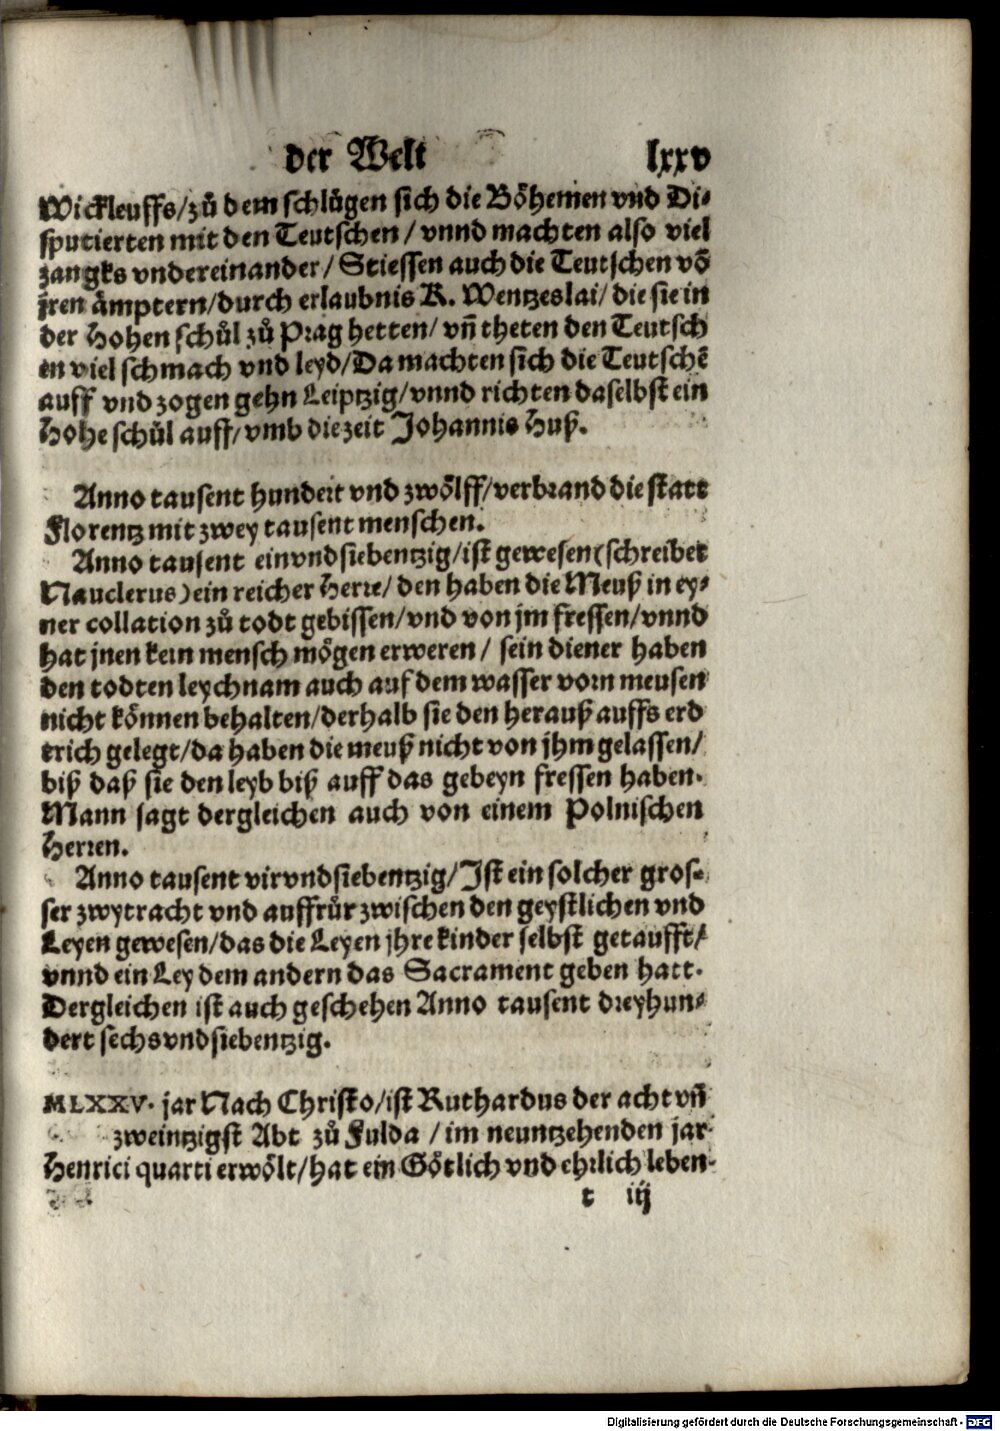 der Welt lxxv
Wickleuffs/zů dem schlůgen sich die Böhemen vnd Di⸗
sputierten mit den Teutschen / vnnd machten also viel
zangks vndereinander/ Stiessen auch die Teutschen võ
jren ämptern/durch erlaubnis K. Wentzeslai/ die sie in
der Hohen schůl zů Prag hetten/ vñ theten den Teutsch
en viel schmach vnd leyd/Da machten sich die Teutschē
auff vnd zogen gehn Leiptzig/vnnd richten daselbst ein
Hohe schůl auff/vmb die zeit Johannis Huß.
Anno tausent hundert vnd zwölff/verbrand die statt
Florentz mit zwey tausent menschen.
Anno tausent einvndsiebentzig/ist gewesen(schreibet
Nauclerus)ein reicher Herre/ den haben die Meuß in ey⸗
ner collation zů todt gebissen/vnd von jm fressen/vnnd
hat jnen kein mensch mögen erweren / sein diener haben
den todten leychnam auch auf dem wasser vorn meusen
nicht können behalten/derhalb sie den herauß auffs erd
trich gelegt/da haben die meuß nicht von jhm gelassen/
biß daß sie den leyb biß auff das gebeyn fressen haben.
Mann sagt dergleichen auch von einem Polnischen
Herren.
Anno tausent virvndsiebentzig/Ist ein solcher gros⸗
ser zwytracht vnd auffrůr zwischen den geystlichen vnd
Leyen gewesen/das die Leyen jhre kinder selbst getaufft/
vnnd ein Ley dem andern das Sacrament geben hatt.
Dergleichen ist auch geschehen Anno tausent dreyhun⸗
dert sechsvndsiebentzig.
MLXXV. jar Nach Christo/ist Ruthardus der acht vñ
zweintzigst Abt zů Fulda /im neuntzehenden jar
Henrici quarti erwölt/hat ein Götlich vnd ehrlich leben
t iij
Digitalisierung gefördert durch die Deutsche Forschungsgemeinschaft - DFG